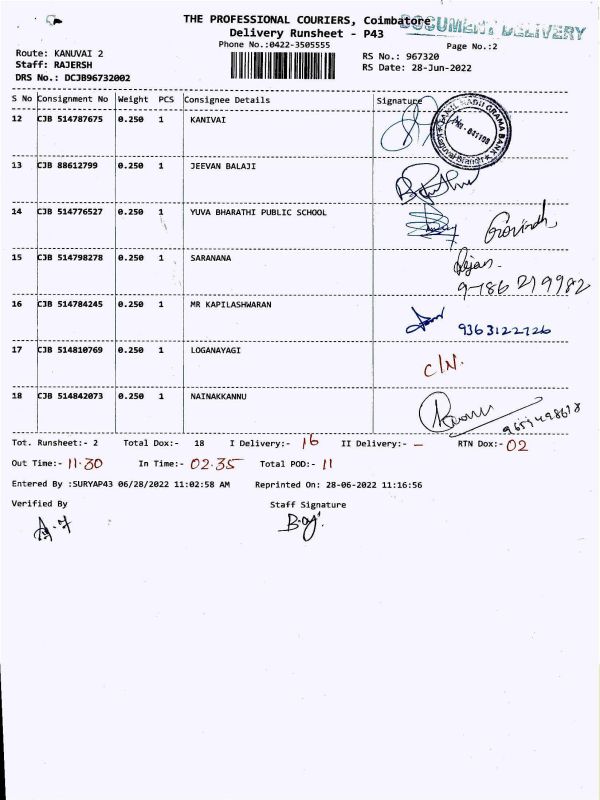 THE PROFESSIONAL COURIERS, Coimbatore
DOCUMENT DELIVERY
Delivery Runsheet - P43
Phone No.:0422-3505555
Page No.:2
Route: KANUVAI 2
Staff: RAJERSH
DRS No.: DCJB96732002
RS No.: 967320
RS Date: 28-Jun-2022
S No Consignment No Weight PCS Consignee Details Signature
12 CJB 514787675 0.250 1 KANIVAI
TAMIL NADU GRAMA BANK
Kanuvai Branch
13 CJB 88612799 0.250 1 JEEVAN BALAJI
14 CJB 514776527 0.250 1 YUVA BHARATHI PUBLIC SCHOOL Govindh
15 CJB 514798278 0.250 1 SARANANA Rajan.
9786219982
16 CJB 514784245 0.250 1 MR KAPILASHWARAN 9363122726
17 CJB 514810769 0.250 1 LOGANAYAGI C/N.
18 CJB 514842073 0.250 1 NAINAKKANNU
Tot. Runsheet:- 2 Total Dox:- 18 I Delivery:- 16 II Delivery:- - RTN Dox:- 02
Out Time:- 11.30 In Time:- 02.35 Total POD:- 11
Entered By :SURYAP43 06/28/2022 11:02:58 AM Reprinted On: 28-06-2022 11:16:56
Verified By Staff Signature